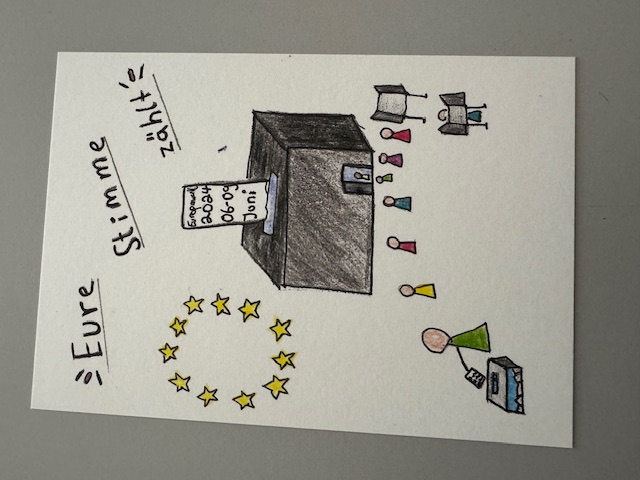 Eure Stimme zählt
Europawahl
2024
06-09
Juni